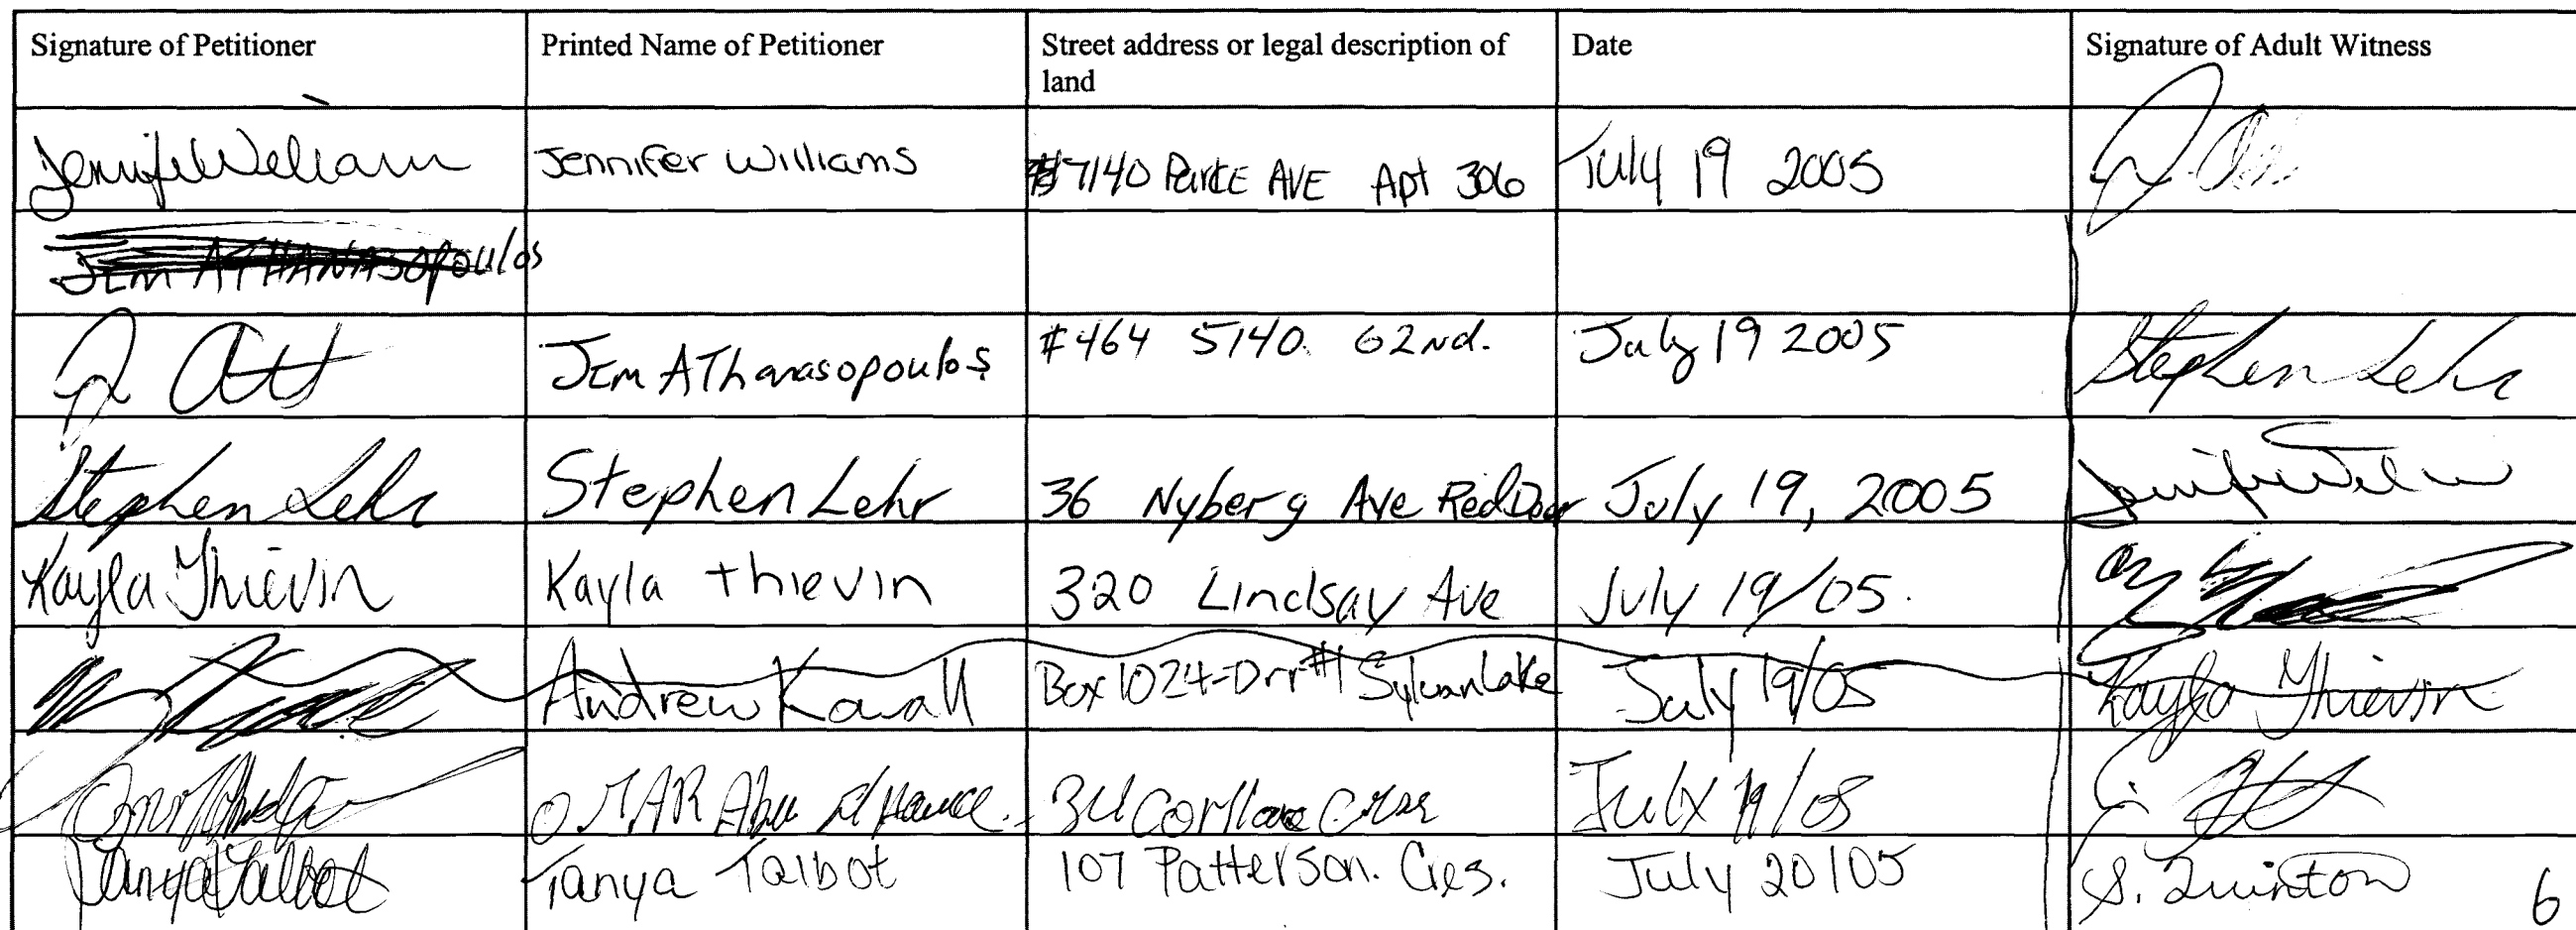 Signature of Petitioner Printed Name of Petitioner Street address or legal description of land Date Signature of Adult Witness
Jennifer Williams #7140 Parke AVE Apt 306 July 19 2005
Jim ATHANASOPOULOS
Jim AThanasopoulos #464 5140. 62nd. July 19 2005 Stephen Lehr
Stephen Lehr Stephen Lehr 36 Nyberg Ave Red Deer July 19, 2005
Kayla Thievin Kayla thievin 320 Lindsay Ave July 19/05.
Andrew Kowall Box 1024-Drr#1 Sylvan Lake July 19/05 Kayla Thievin
OMAR Abu July 19/05
Tanya Talbot Tanya Talbot 107 Patterson. Cres. July 20/05 S. Quinton
6